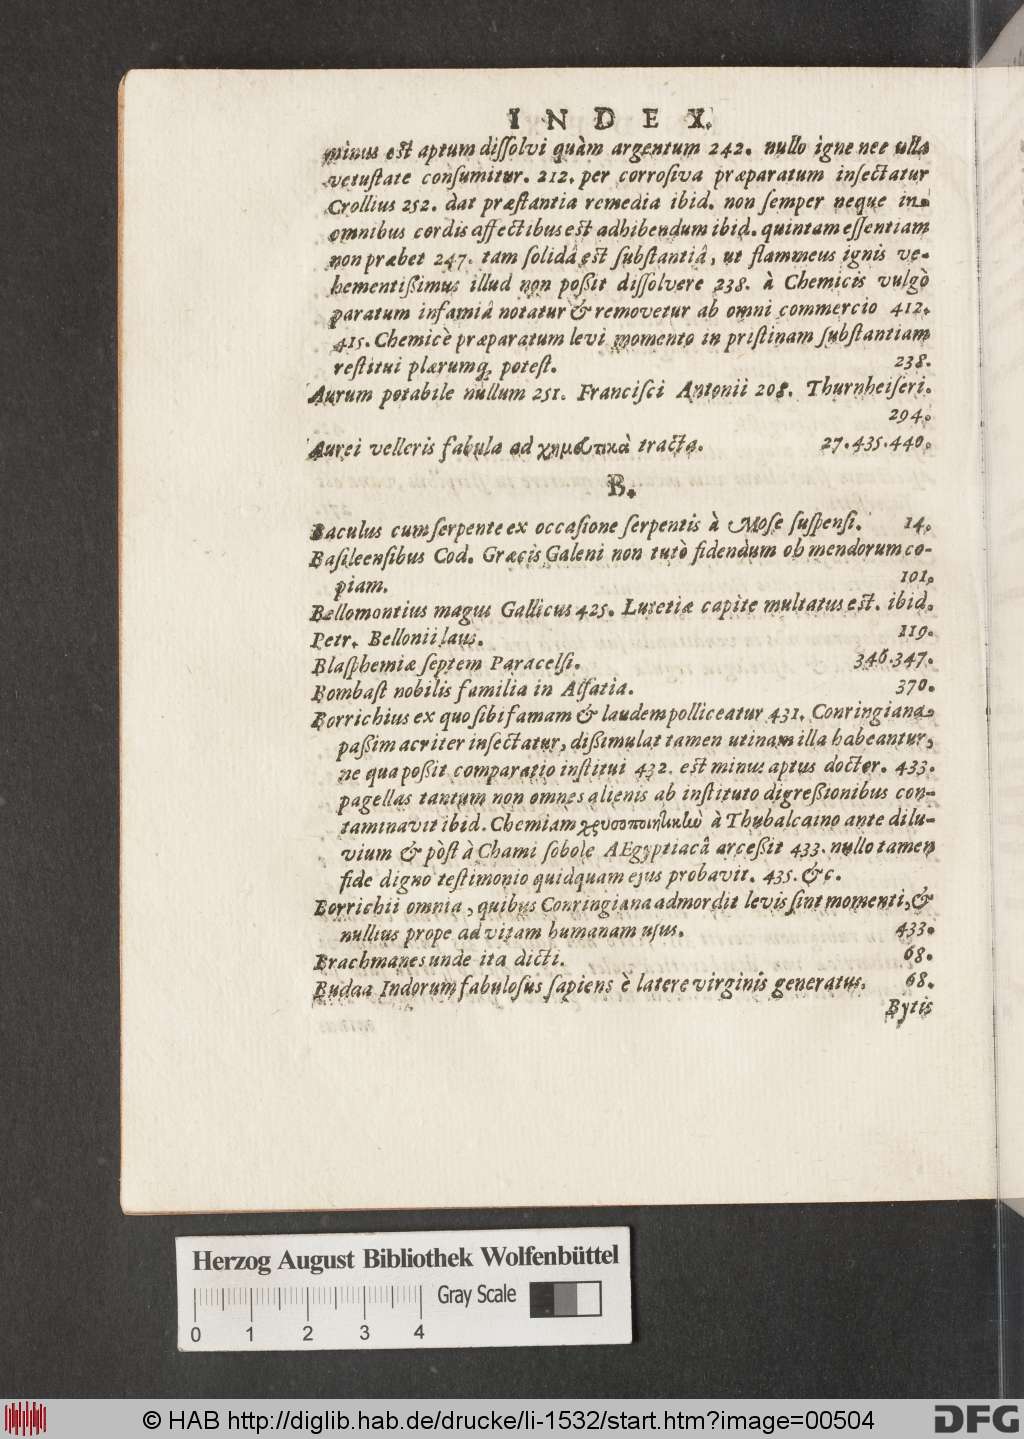 INDEX.
minus est aptum dissolvi quàm argentum 242. nullo igne nec ulla
vetustate consumitur. 212. per corrosiva præparatum insectatur
Crollius 252. dat præstantia remedia ibid. non semper neque in
omnibus cordis affectibus est adhibendum ibid. quintam essentiam
non præbet 247. tam solidâ est substantiâ, ut flammeus ignis ve-
hementißimus illud non poßit dissolvere 238. à Chemicis vulgò
paratum infamiâ notatur & removetur ab omni commercio 412.
415. Chemicè præparatum levi momento in pristinam substantiam
restitui plærumq; potest. 238.
Aurum potabile nullum 251. Francisci Antonii 208. Thurnheiseri.
294.
Aurei velleris fabula ad χημευτικὰ tracta. 27. 435. 440.
B.
Baculus cum serpente ex occasione serpentis à Mose suspensi. 14.
Basileensibus Cod. Græcis Galeni non tutò fidendum ob mendorum co-
piam. 101.
Bellomontius magus Gallicus 425. Lutetiæ capite multatus est. ibid.
Petr. Bellonii laus. 119.
Blasphemiæ septem Paracelsi. 346. 347.
Bombast nobilis familia in Alsatia. 370.
Borrichius ex quo sibi famam & laudem polliceatur 431. Conringiana
paßim acriter insectatur, dißimulat tamen utinam illa habeantur,
ne qua poßit comparatio institui 432. est minus aptus doctor. 433.
pagellas tantum non omnes alienis ab instituto digreßionibus con-
taminavit ibid. Chemiam χρυσοποιητικὼ à Thubalcaino ante dilu-
vium & pòst à Chami sobole AEgyptiacâ arceßit 433. nullo tamen
fide digno testimonio quidquam ejus probavit. 435. &c.
Borrichii omnia, quibus Conringiana admordit levis sint momenti, &
nullius prope ad vitam humanam usus. 433.
Brachmanes unde ita dicti. 68.
Budaa Indorum fabulosus sapiens è latere virginis generatus. 68.
Bytis
Herzog August Bibliothek Wolfenbüttel
Gray Scale
0 1 2 3 4
© HAB http://diglib.hab.de/drucke/li-1532/start.htm?image=00504
DFG